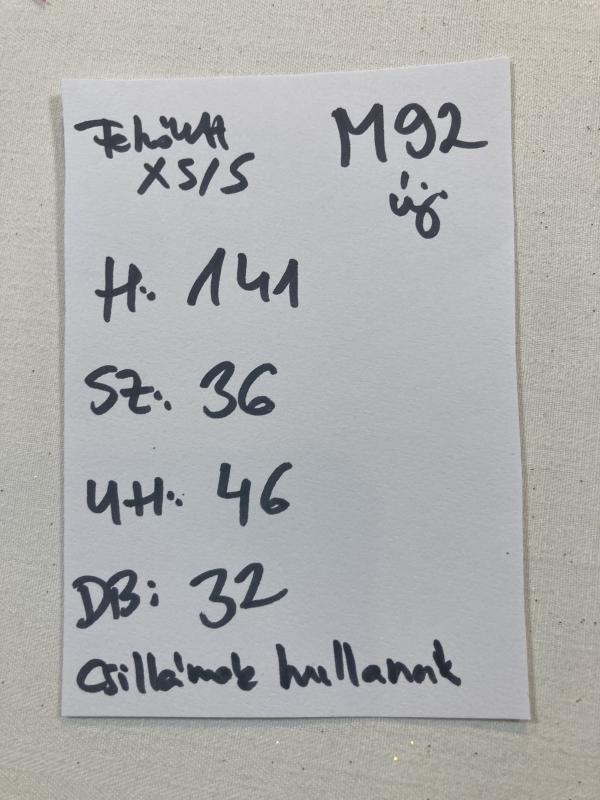 Felnőtt M92
XS/S új
H: 141
SZ: 36
UH: 46
DB: 32
Csillámok hullanak